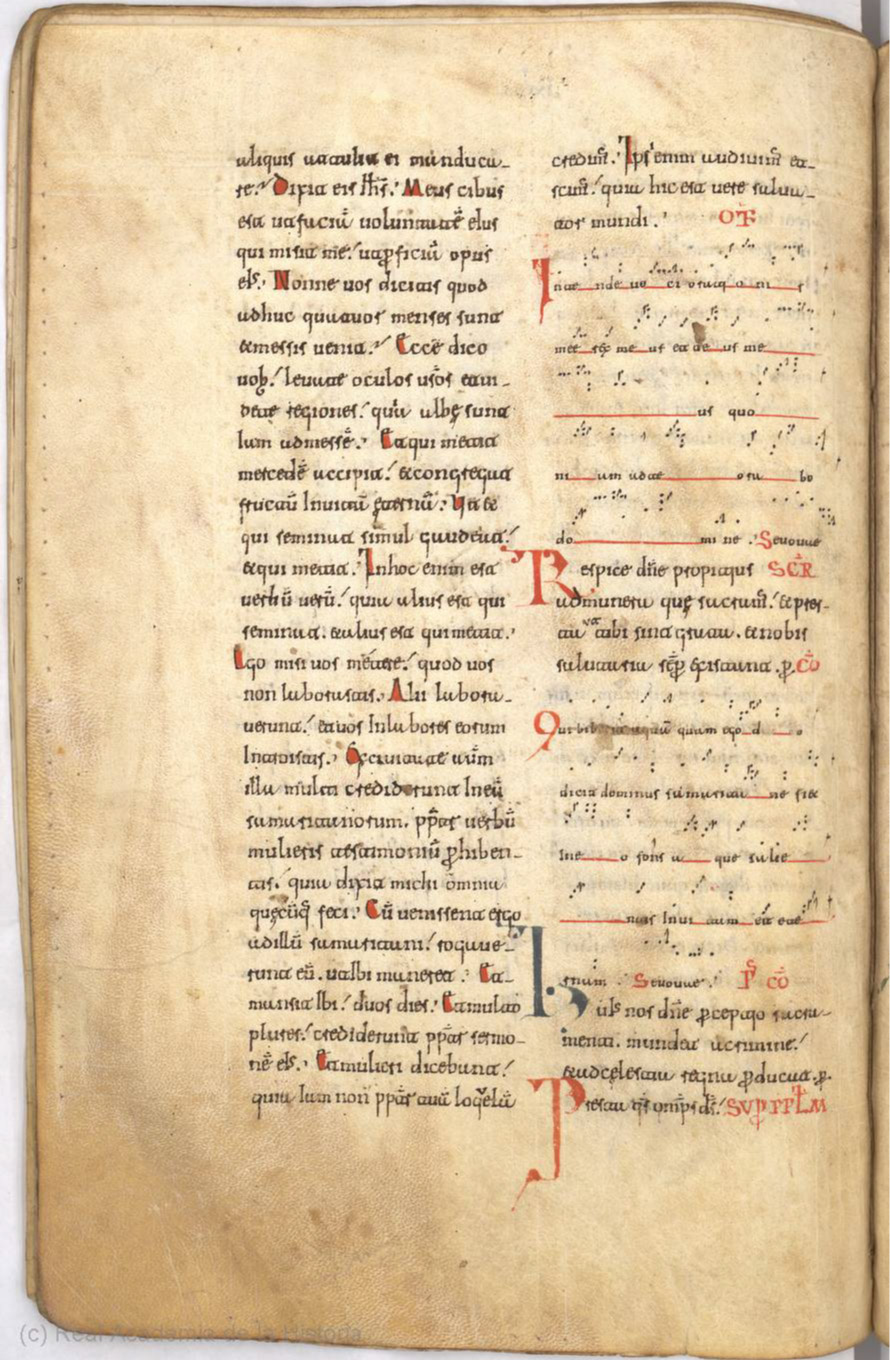 aliquis attulit ei manduca-
re. Dixit eis ihs. Meus cibus
est ut faciā voluntatē eius
qui misit me. ut pficiā opus
eis. Nonne vos dicitis quod
adhuc quatuor menses sunt
& messis venit. Ecce dico
vob. levate oculos vros et vi-
dete regiones. quia albę sunt
iam ad messē. Et qui metit
mercedē accipit. & congregat
fructū in vitā ęternā. Ut &
qui seminat simul gaudeat.
& qui metit. In hoc enim est
verbū verū. quia alius est qui
seminat. et alius est qui metit.
Ego misi vos metere. quod vos
non laborastis. Alii labora-
verunt. et vos in labores eorum
introistis. Ex civitate aūm
illa multi crediderunt in eū
samaritanorum. ppter verbū
mulieris testimoniū phiben-
tis. quia dixit michi omnia
quęcūq feci. Cū venissent ergo
ad illū samaritani. rogave-
runt eū. ut ibi maneret. Et
mansit ibi. duos dies. Et multo
plures. crediderunt ppter sermo-
nē eis. Et mulieri dicebant.
quia iam non ppter tuā loquelā
credim. Ipsi enim audivim et
scim. quia hic est vere salva-
tor mundi. OF
Intende voci orationis
mee rex meus et deus me
us quo
niam ad te orabo
domine. Sevovae
Respice dne propitius SCR
ad munera que sacram. & pres-
tant tibi sint grata. & nobis
salutaria sep existant. p. CO
Qui biberit aquā quam ego do
dicit dominus samaritane fiet
in eo fons aque salie
ntis in vitam eter
nam. Sevovae. PS CO
Huis nos dne pceptio sacra-
menti. mundet a crimine.
& ad celestia regna pducat. p.
Presta qs omps ds. SUP PPLM
(c) Real Academia de la Historia